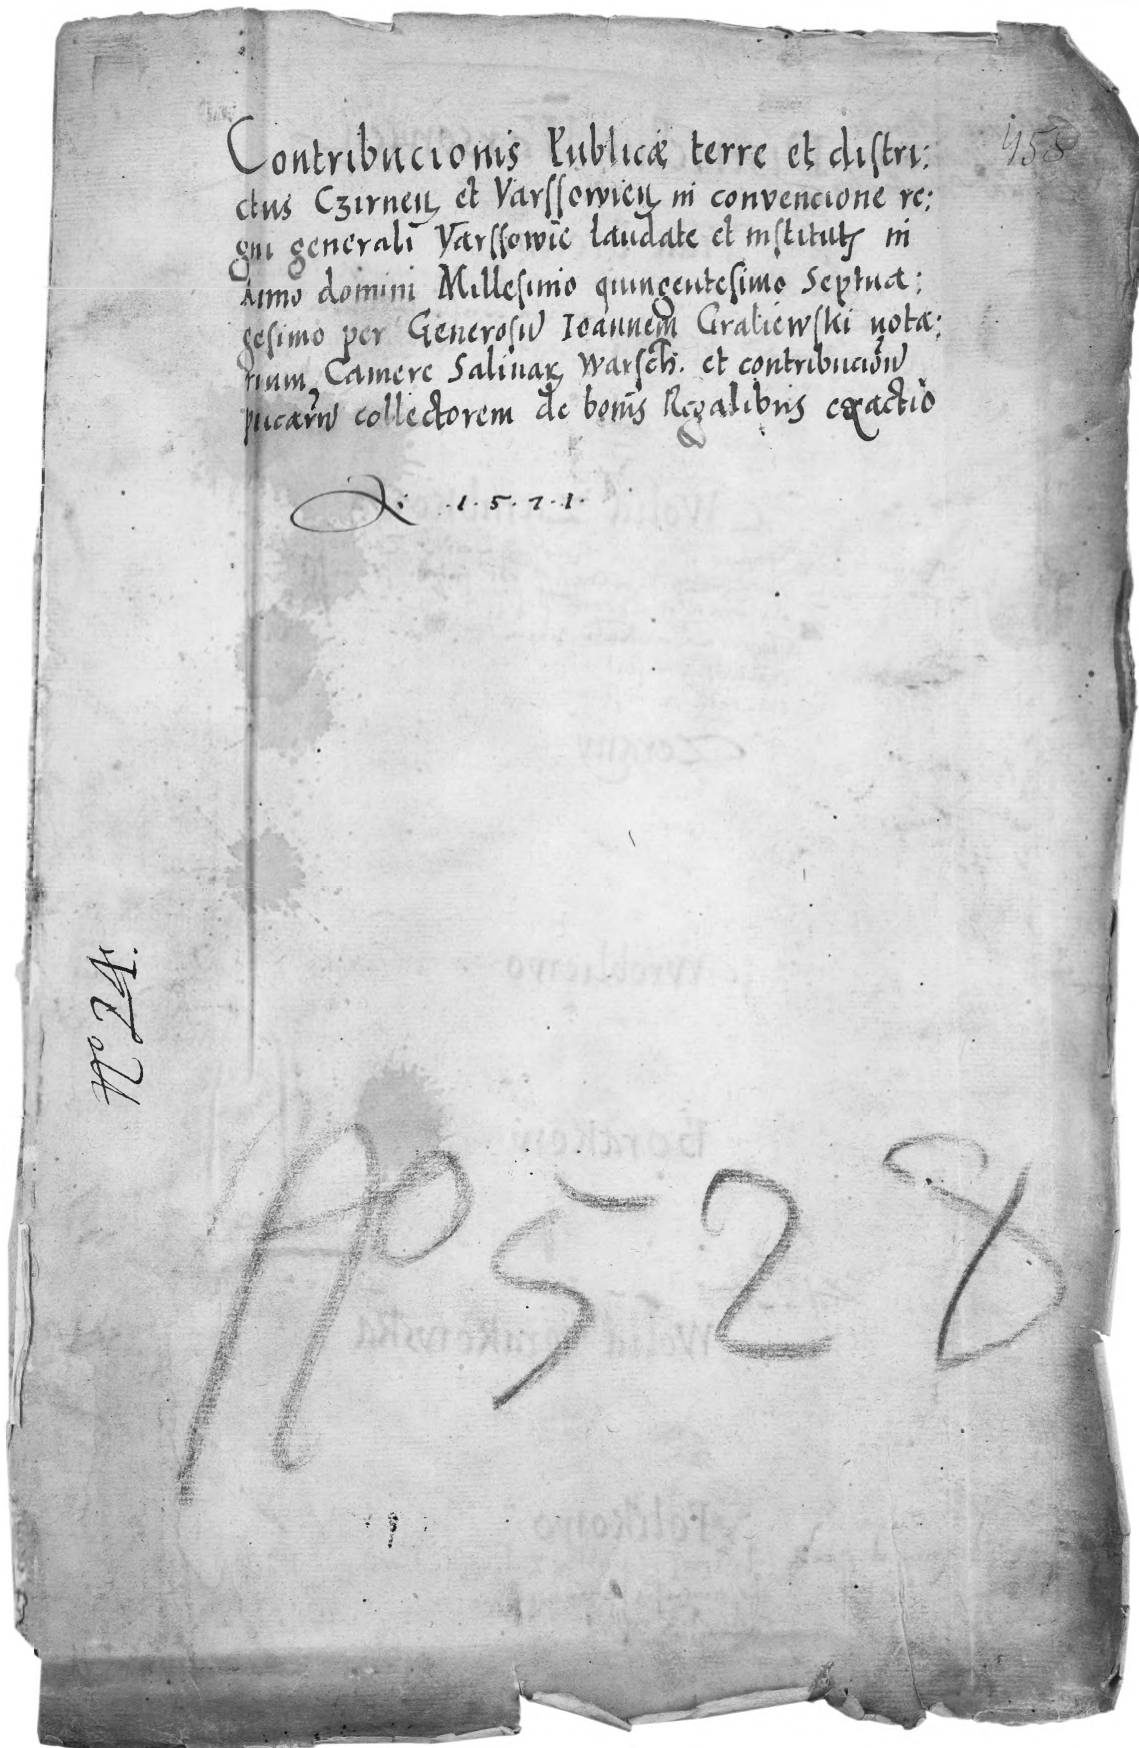 Contribucionis Publicæ terre et distri:
ctus Czirneñ et Varssowieñ in convencione re:
gni generali Varssowie laudate et institutę in
Anno domini Millesimo quingentesimo Septua:
gesimo per Generosũ Ioannem Graliewski nota:
rium Camere Salinaꝝ Warsch. et contribucionũ
pucarũ collectorem de bonis Regalibus exactio
1.5.7.1.
458
No 24.
No 528